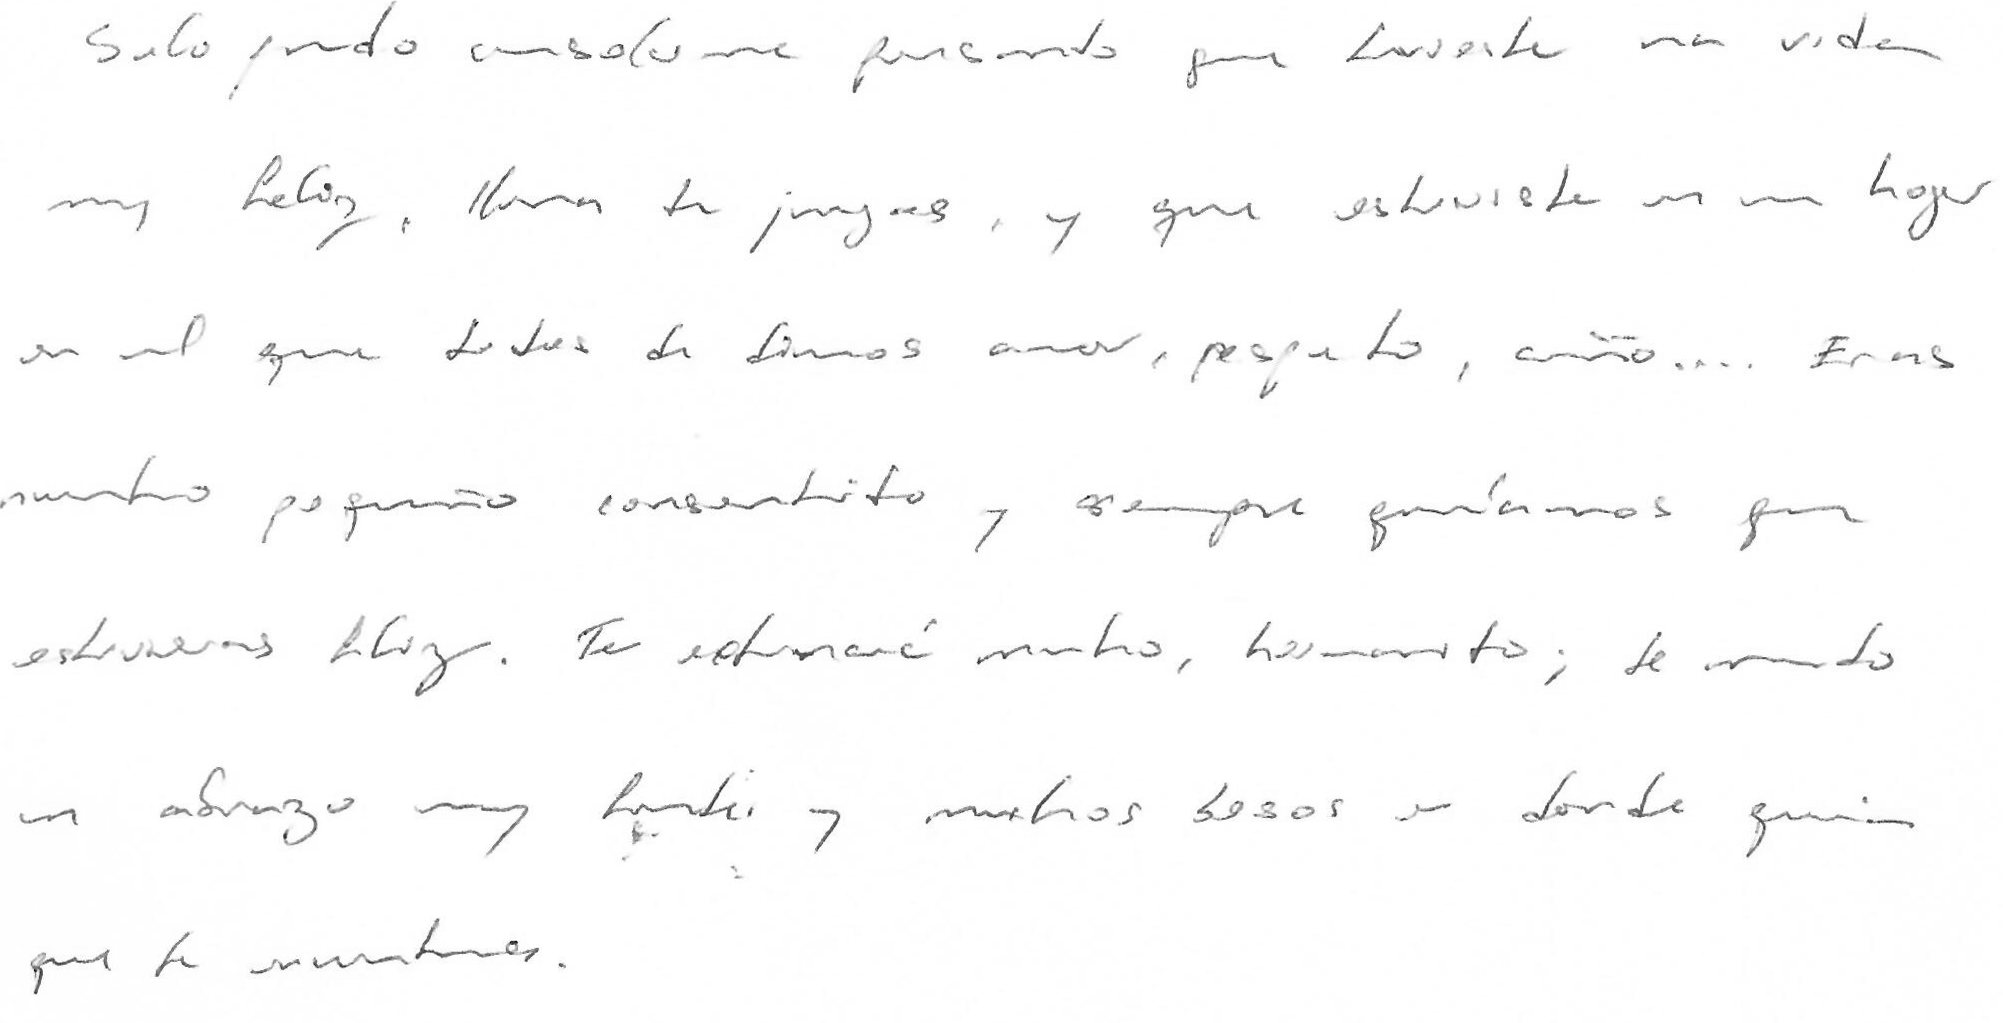 Solo puedo consolarme pensando que tuviste una vida
muy feliz, llena de juegos, y que estuviste en un hogar
en el que todos te dimos amor, respeto, cariño.... Eras
nuestro pequeño consentido y siempre queríamos que
estuvieras feliz. Te extrañaré mucho, hermanito; te mando
un abrazo muy fuerte y muchos besos a donde quiera
que te encuentres.